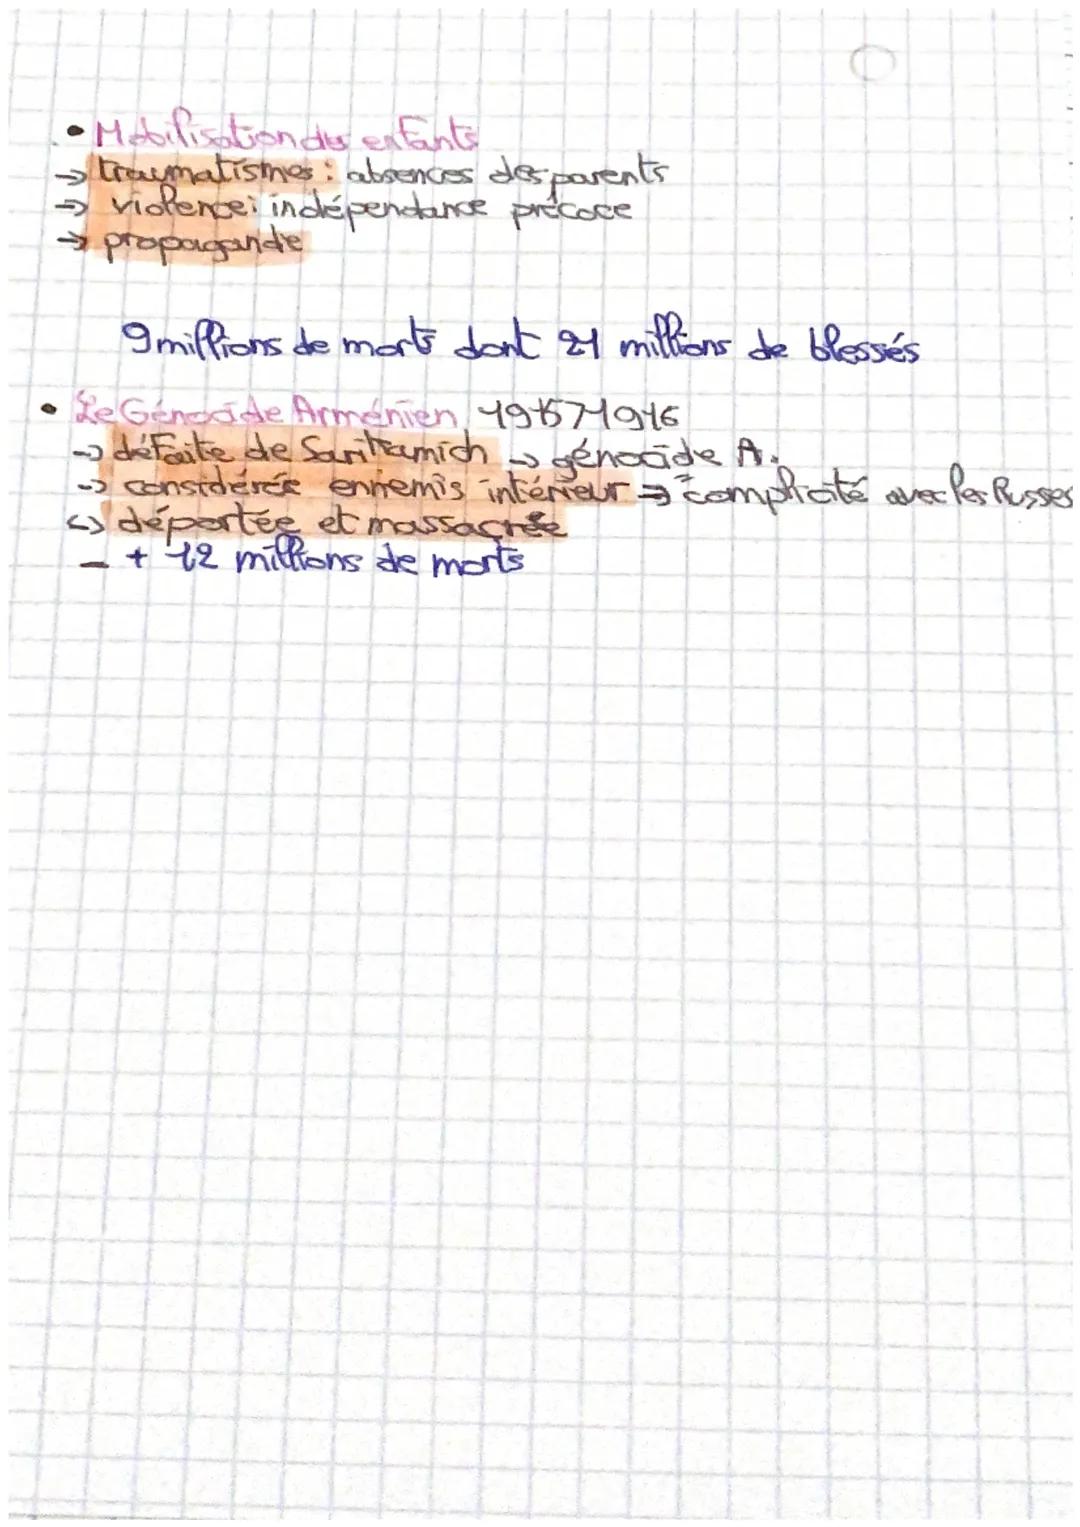 • Mobilisation des enfants
→ traumatismes : absences des parents
→ violence : indépendance précoce
→ propagande
9 millions de morts dont 21 millions de blessés
• Le Génocide Arménien 1915-1916
→ défaite de Sarikamich → génocide A.
→ considérée ennemis intérieur → complicité avec les Russes
↳ déportée et massacrée
- + 12 millions de morts